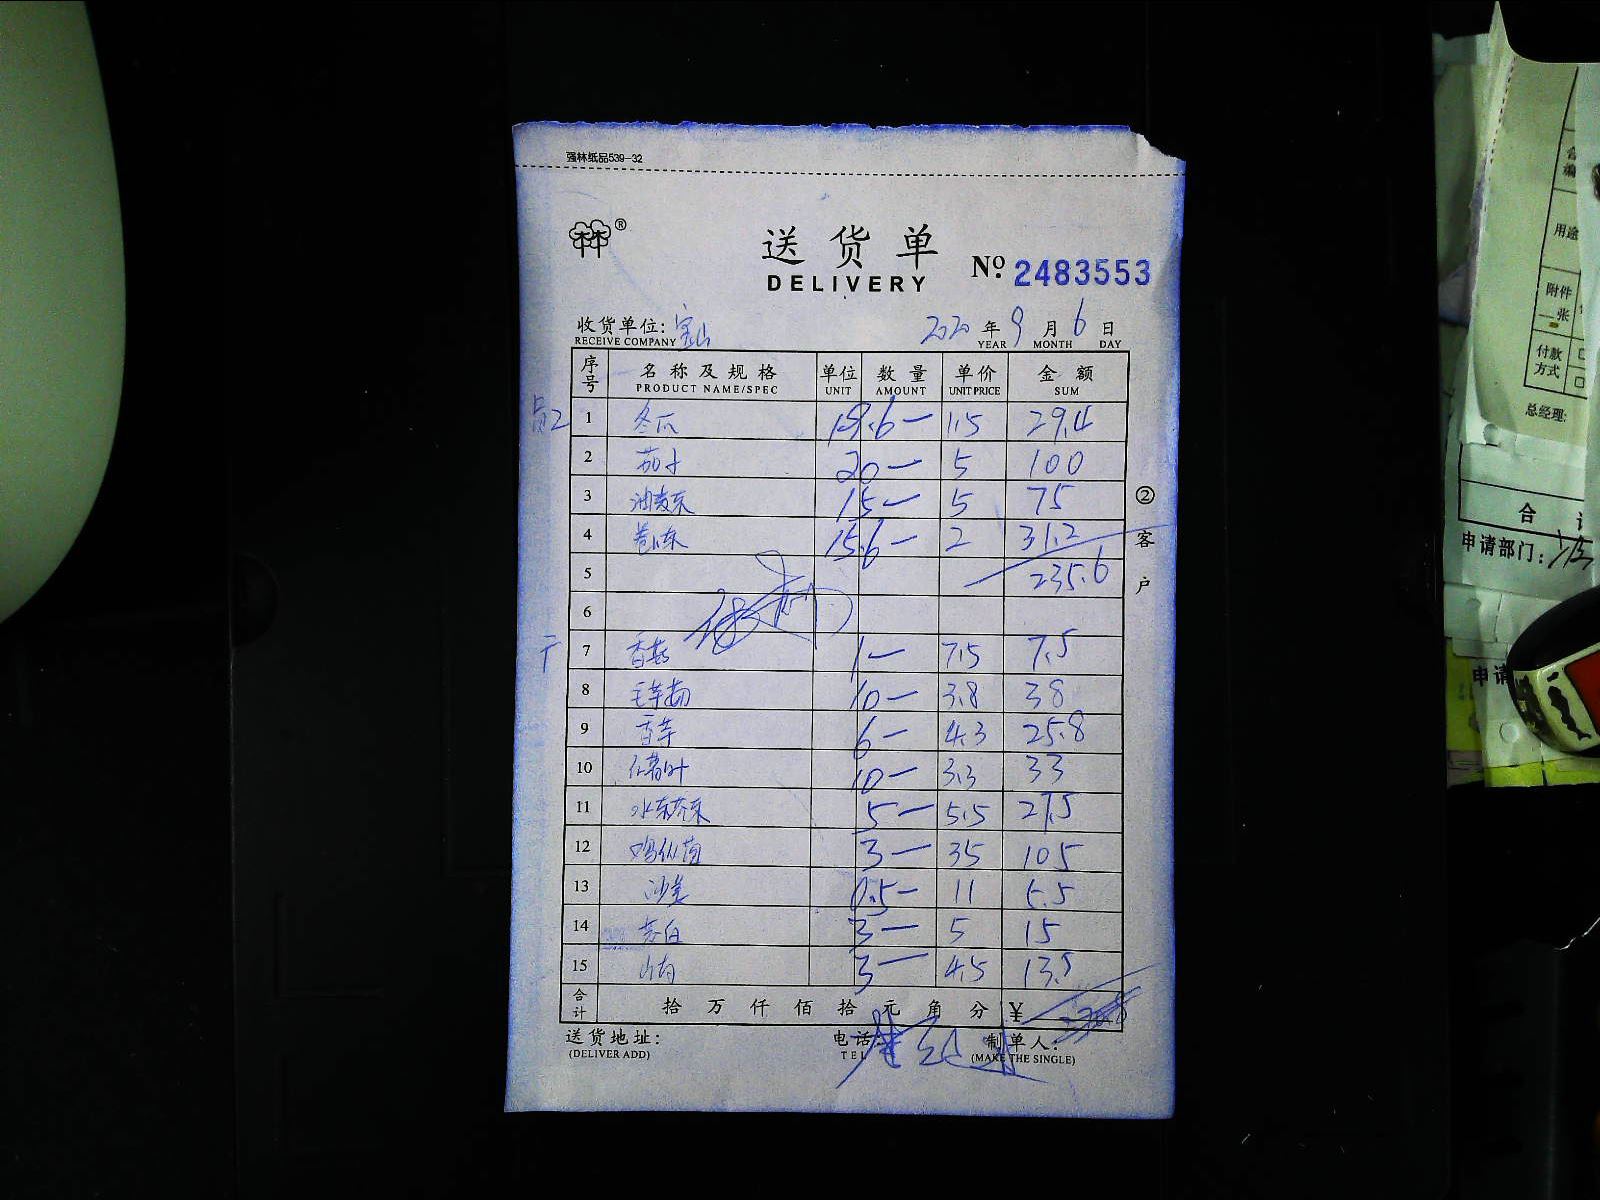 强林纸品539-32
林®
送货单
DELIVERY
№ 2483553
收货单位: 宝山
RECEIVE COMPANY
2020 年 9 月 6 日
YEAR MONTH DAY
序号 名称及规格 单位 数量 单价 金额
PRODUCT NAME/SPEC UNIT AMOUNT UNIT PRICE SUM
1 冬瓜 19.6 — 1.5 29.4
2 茄子 20 — 5 100
3 油麦菜 15 — 5 75
4 15.6 — 2 31.2
5 235.6
6
7 香菇 1 — 7.5 7.5
8 10 — 3.8 38
9 香芋 6 — 4.3 25.8
10 叶 10 — 3.3 33
11 水东芥菜 5 — 5.5 27.5
12 鸡枞菌 3 — 35 105
13 沙姜 0.5 — 11 5.5
14 3 — 5 15
15 3 — 4.5 13.5
合计 拾 万 仟 佰 拾 元 角 分 ¥
② 客户
送货地址:
(DELIVER ADD)
电话:
TEL
制单人:
(MAKE THE SINGLE)
用途
附件
张
付款
方式
总经理:
合
申请部门:
申请